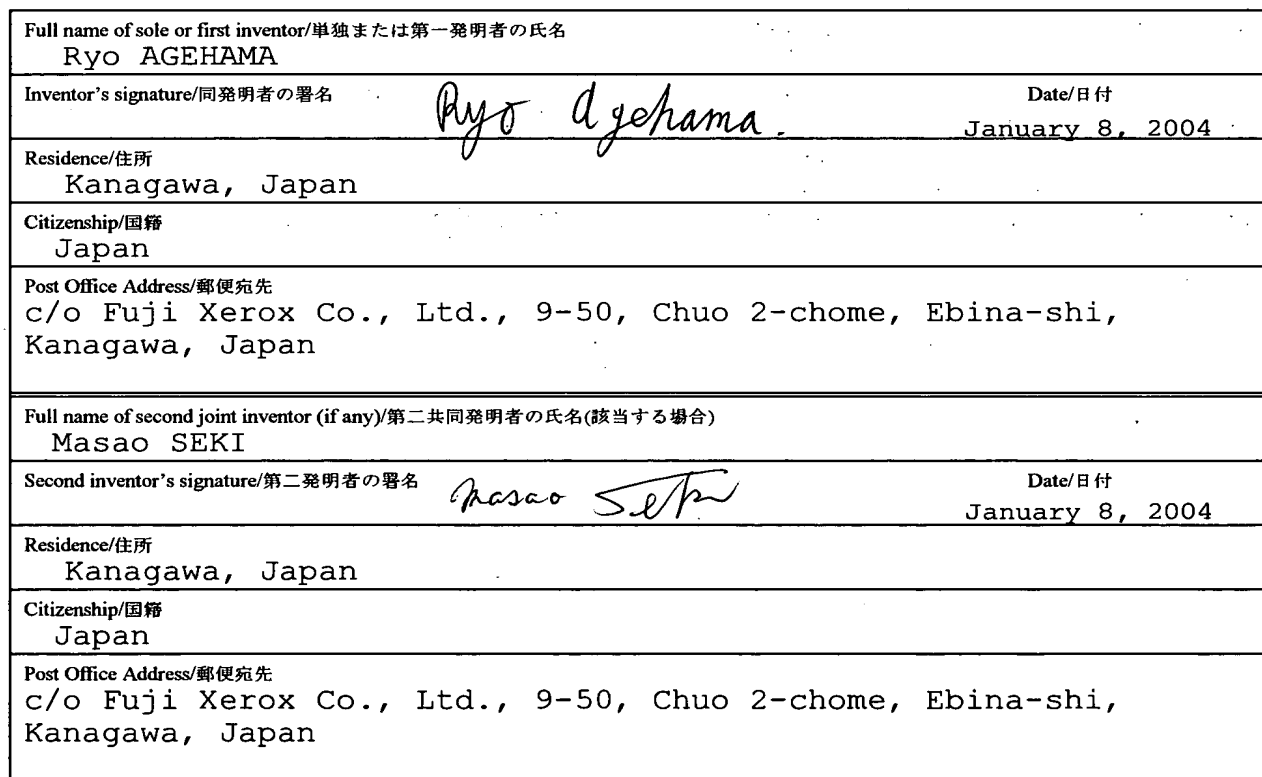 Full name of sole or first inventor/単独または第一発明者の氏名
Ryo AGEHAMA
Inventor's signature/同発明者の署名 Ryo Agehama. Date/日付
January 8, 2004
Residence/住所
Kanagawa, Japan
Citizenship/国籍
Japan
Post Office Address/郵便宛先
c/o Fuji Xerox Co., Ltd., 9-50, Chuo 2-chome, Ebina-shi,
Kanagawa, Japan
Full name of second joint inventor (if any)/第二共同発明者の氏名(該当する場合)
Masao SEKI
Second inventor's signature/第二発明者の署名 Masao Seki Date/日付
January 8, 2004
Residence/住所
Kanagawa, Japan
Citizenship/国籍
Japan
Post Office Address/郵便宛先
c/o Fuji Xerox Co., Ltd., 9-50, Chuo 2-chome, Ebina-shi,
Kanagawa, Japan